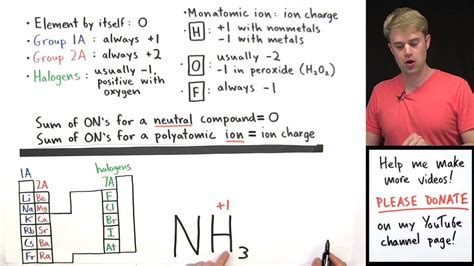 • Element by itself: 0
• Group 1A: always +1
• Group 2A: always +2
• Halogens: usually -1,
positive with
oxygen
• Monatomic ion: ion charge
• H: +1 with nonmetals
-1 with metals
• O: usually -2
-1 in peroxide (H₂O₂)
• F: always -1
Sum of ON's for a neutral compound = 0
Sum of ON's for a polyatomic ion = ion charge
1A
2A
Li Be
Na Mg
K Ca
Rb Sr
Cs Ba
Fr Ra
halogens
7A
F
Cl
Br
I
At
+1
NH₃
Help me make
more videos!
PLEASE DONATE
on my YouTube
channel page!